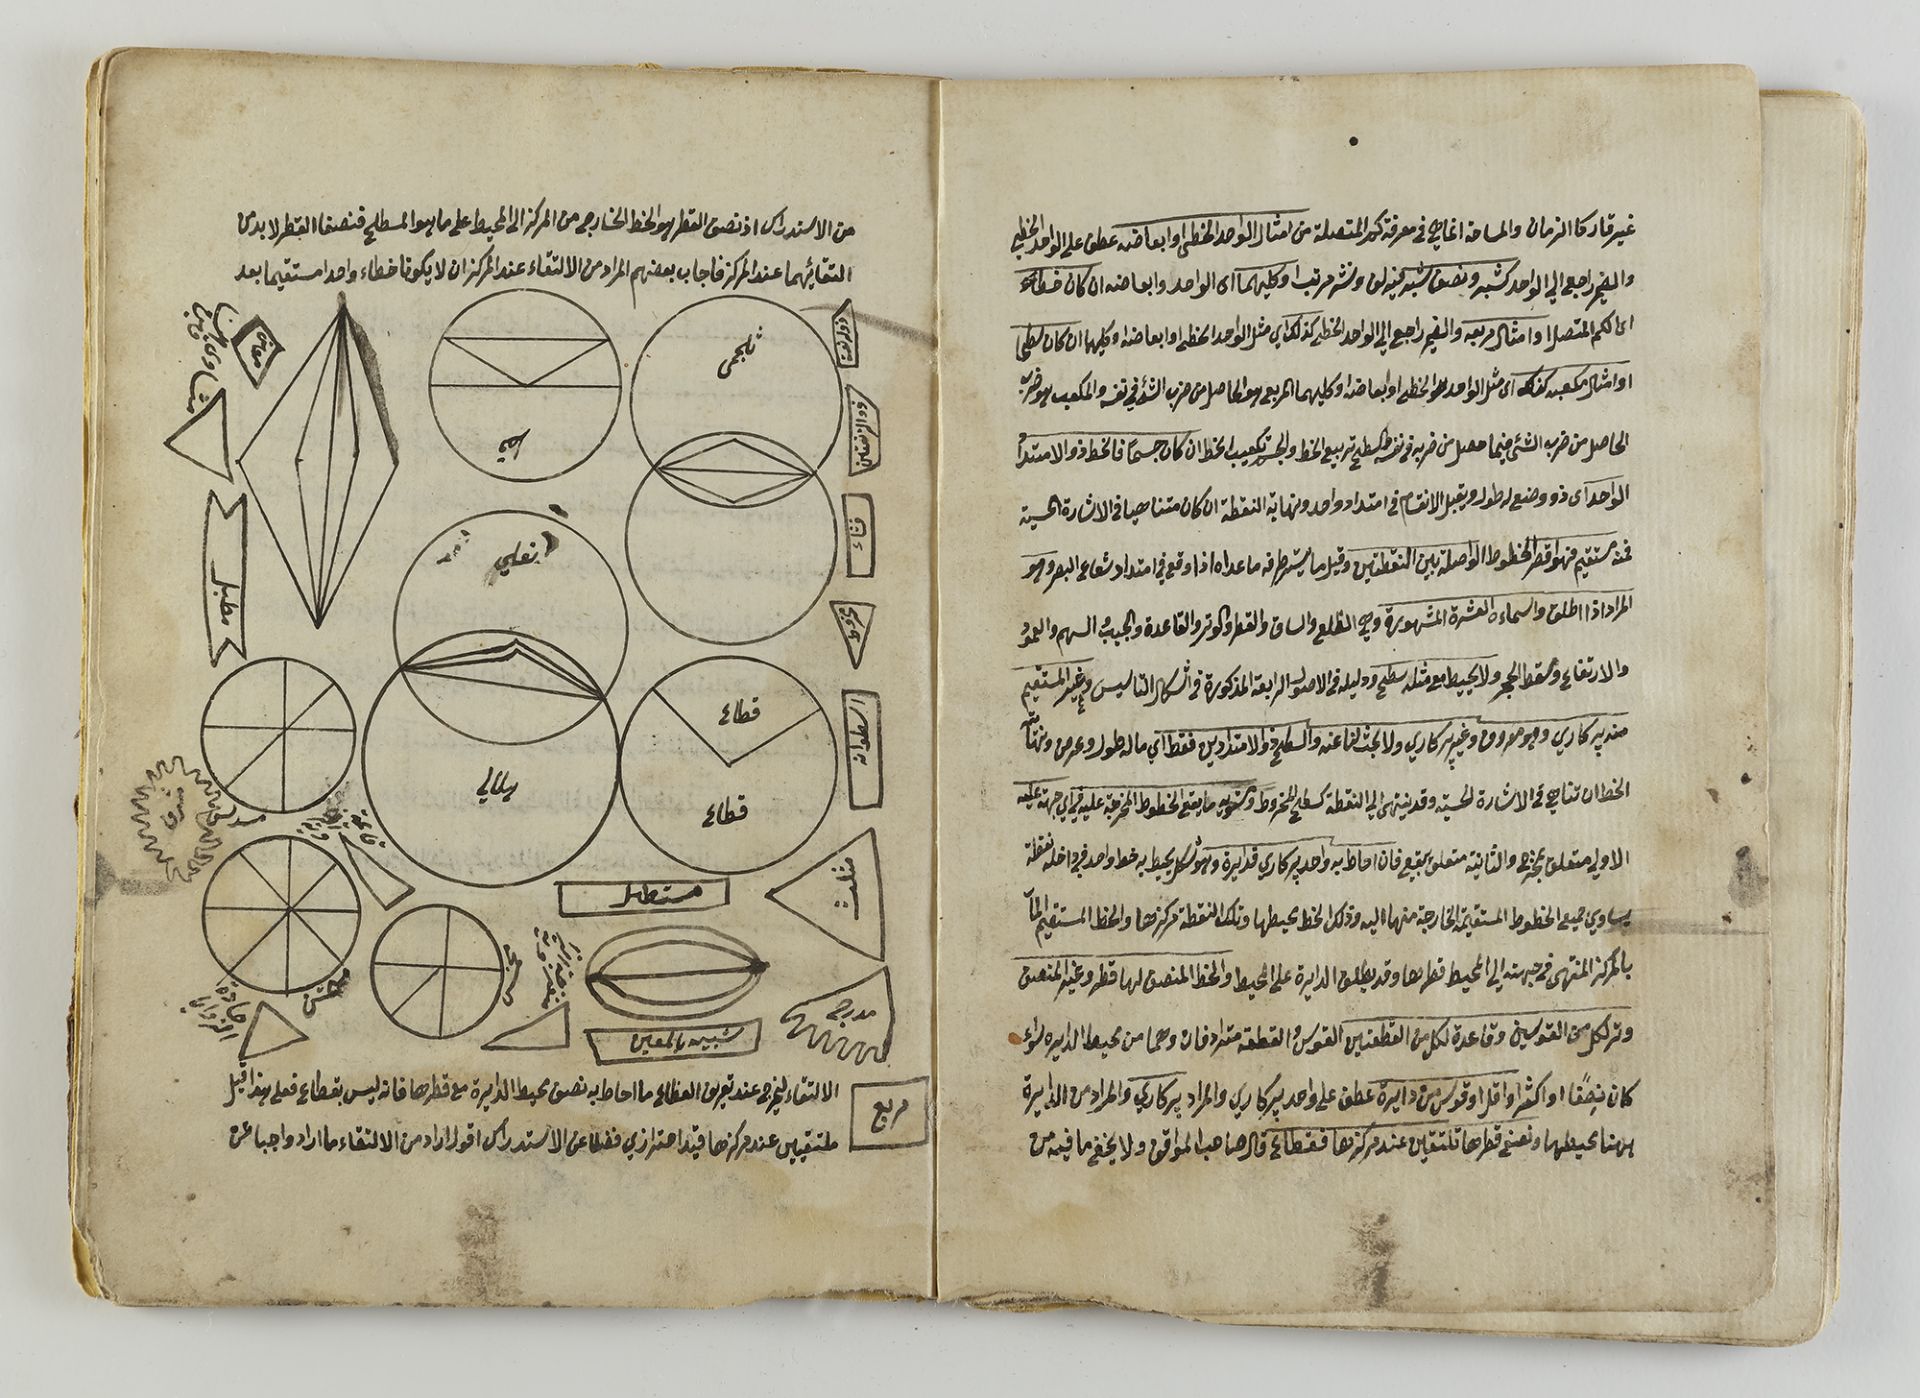 غير قار كالزمان والمساحة انما هي في معرفة كم المتصلة من امثال الواحد الخطي او ابعاضه عطف على الواحد الخطي
والضمير راجع الى الواحد كشبر ونصف شبر ونشر مرتب او كليهما اى الواحد وابعاضه ان كان خطا
اى الكم المتصل او امثال مربعه والضمير راجع الى الواحد الخطى كذلك اي مثل الواحد الخطى او ابعاضه او كليهما ان كان سطحا
او امثال مكعبه كذلك اى مثل الواحد الخطى او ابعاضه او كليهما المربع هو الحاصل من ضرب الشئ في نفسه والمكعب هو
الحاصل من ضرب الشئ فيما حصل من ضربه في نفسه تربيع الخط تكعيب الخط ان كان جسمًا فالخط ذو الامتداد
الواحد اى ذو وضع له طول ويقبل الانقسام في امتداد واحد ونهاية النقطة ان كان متناهيا في الاشارة الحسية
فمنه مستقيم فهو اقصر الخطوط الواصلة بين النقطتين وقيل ما يستر طرفه ما عداه اذا وقع في امتداد شعاع البصر وهو
المراد اذا اطلق واسماءه العشرة المشهورة وهي الضلع والساق والقطر والوتر والقاعدة والجيب والسهم والعمود
والارتفاع ومسقط الحجر ولا يحيط مع مثله سطح ودليله في الاصول الرابعة المذكورة في اشكال التاسيس وغير المستقيم
منه پركاري وهو معروف وغير پركاري ولا بحث لنا عنه والسطح ذو الامتدادين فقط اي ما له طول وعرض
الخط ان تناهي في الاشارة الحسية وقد ينتهى الى النقطة كسطح المخروط ومستويه ما يقع الخطوط المخرجة عليه في اي جهة عليه
الاولى متعلق بمخرج والثانية متعلق بيقع فان احاط به واحد پركاري فدايرة وهو شكل يحيط به خط واحد في داخله نقطة
يساوي جميع الخطوط المستقيمة الخارجة منها اليه وذلك الخط محيطها وتلك النقطة مركزها والخط المستقيم المار
بالمركز المنتهى في جهتيه الى المحيط قطرها وقد يطلق الدايرة على المحيط والخط المنصف لها قطر وغير المنصف
وتر لكل من القوسين وقاعدة لكل من القطعتين القوس والقطعة مترادفان وهما من محيط الدايرة سواء
كان نصفًا او اكثر او اقل او قوس من دايرة عطف على واحد پركاري والمراد پركاري والمراد من الدايرة
ههنا محيطها ونصفي قطرها تلتقين عند مركزها فقطاع قال صاحب المواقف ولا يخفى ما فيه من
من الاستدراك اذ نصف القطر هو الخط الخارج من المركز الى المحيط على ما هو المسطلح فنصفا القطر لا بد من
التقائهما عند المركز فاجاب بعضهم المراد من الالتقاء عند المركز ان لا يكونا خطا واحدا مستقيما بعد
ذو الزنقة
ذو الزنقتين
قثاء
مخروط
اسطوانة
مثلث
مدرج
مربع
شلجمى
اهليلجي
نعلي
هلالي
قطاع
قطاع
مستطيل
شبيه بالمعين
معين
مطبل
مسدس
مثمن
حادة الزوايا
الالتقاء ليخرج عند تعريف القطاع ما احاط به نصف محيط الدايرة مع قطرها فانه ليس بقطاع فعلى هذا قيل
ملتقيين عند مركزها قيد احترازي فضلا عن الاستدراك اقول اراد من الالتقاء ما اراد واجبا عن